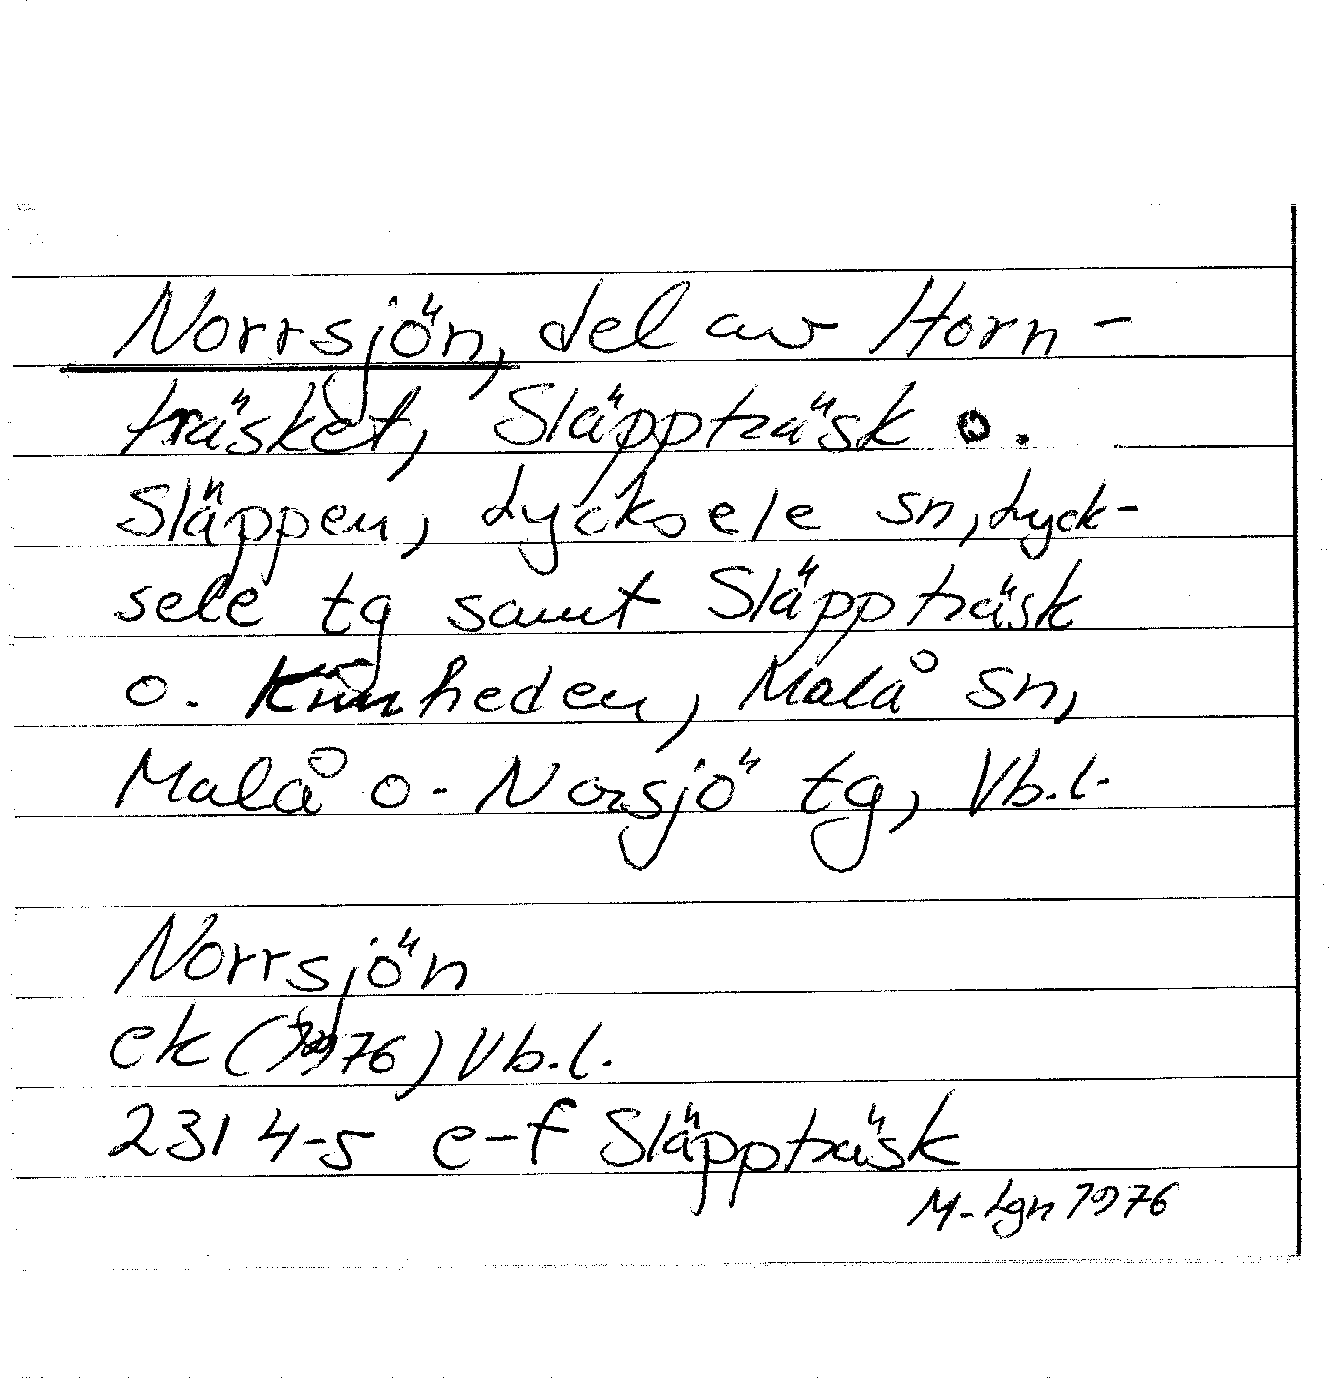 Norrsjön, del av Horn-
träsket, Släppträsk o.
Släppen, Lycksele sn, Lyck-
sele tg samt Släppträsk
o. heden, Malå sn,
Malå o. Norsjö tg, Vb.l.
Norrsjön
ek (1976) Vb.l.
231 4-5 e-f Släppträsk
M-Lgn 1976